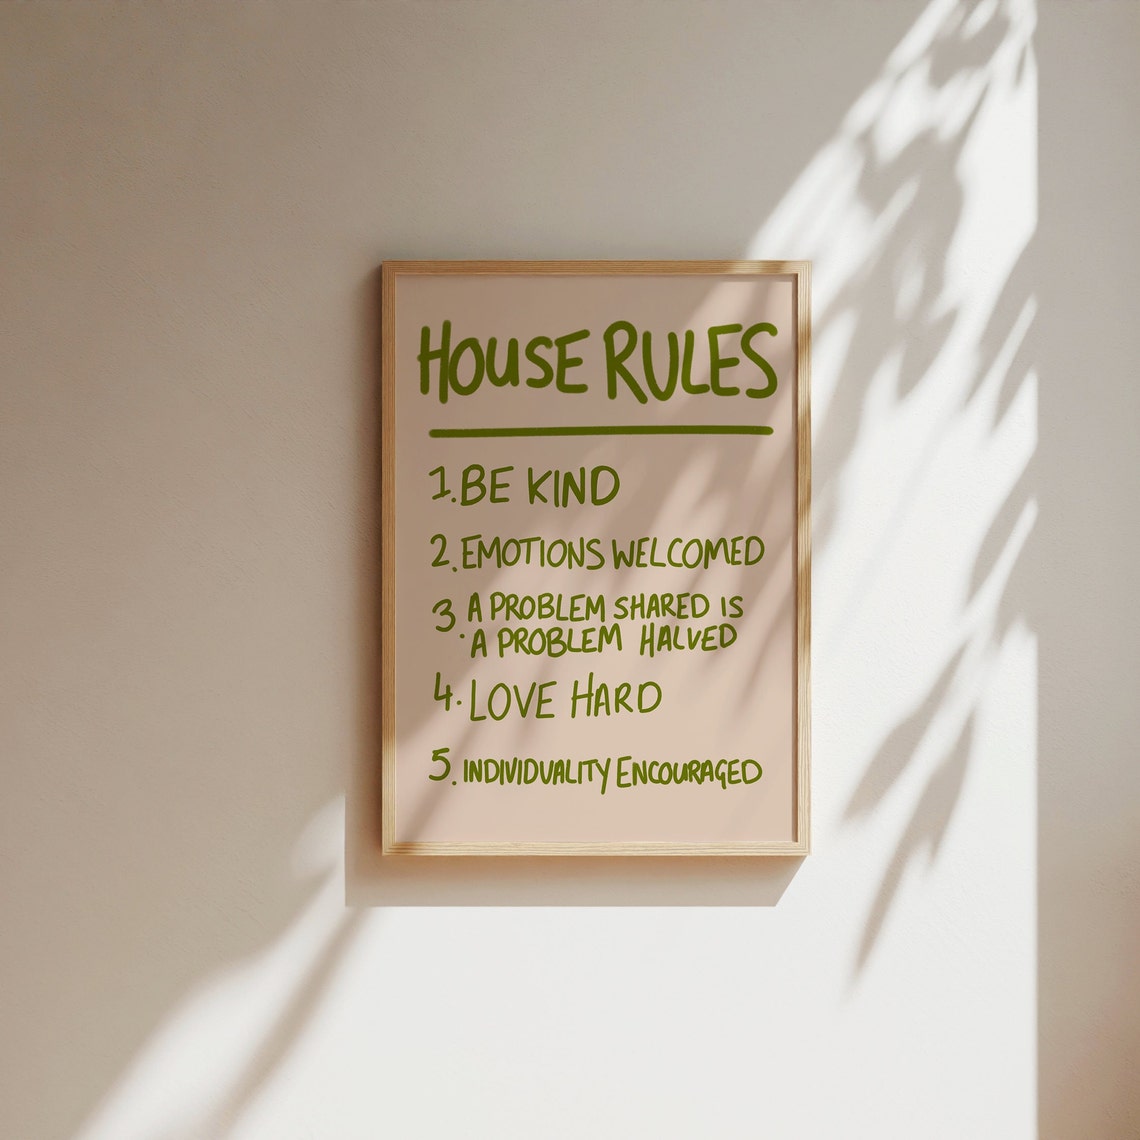 HOUSE RULES
1. BE KIND
2. EMOTIONS WELCOMED
3. A PROBLEM SHARED IS
A PROBLEM HALVED
4. LOVE HARD
5. INDIVIDUALITY ENCOURAGED